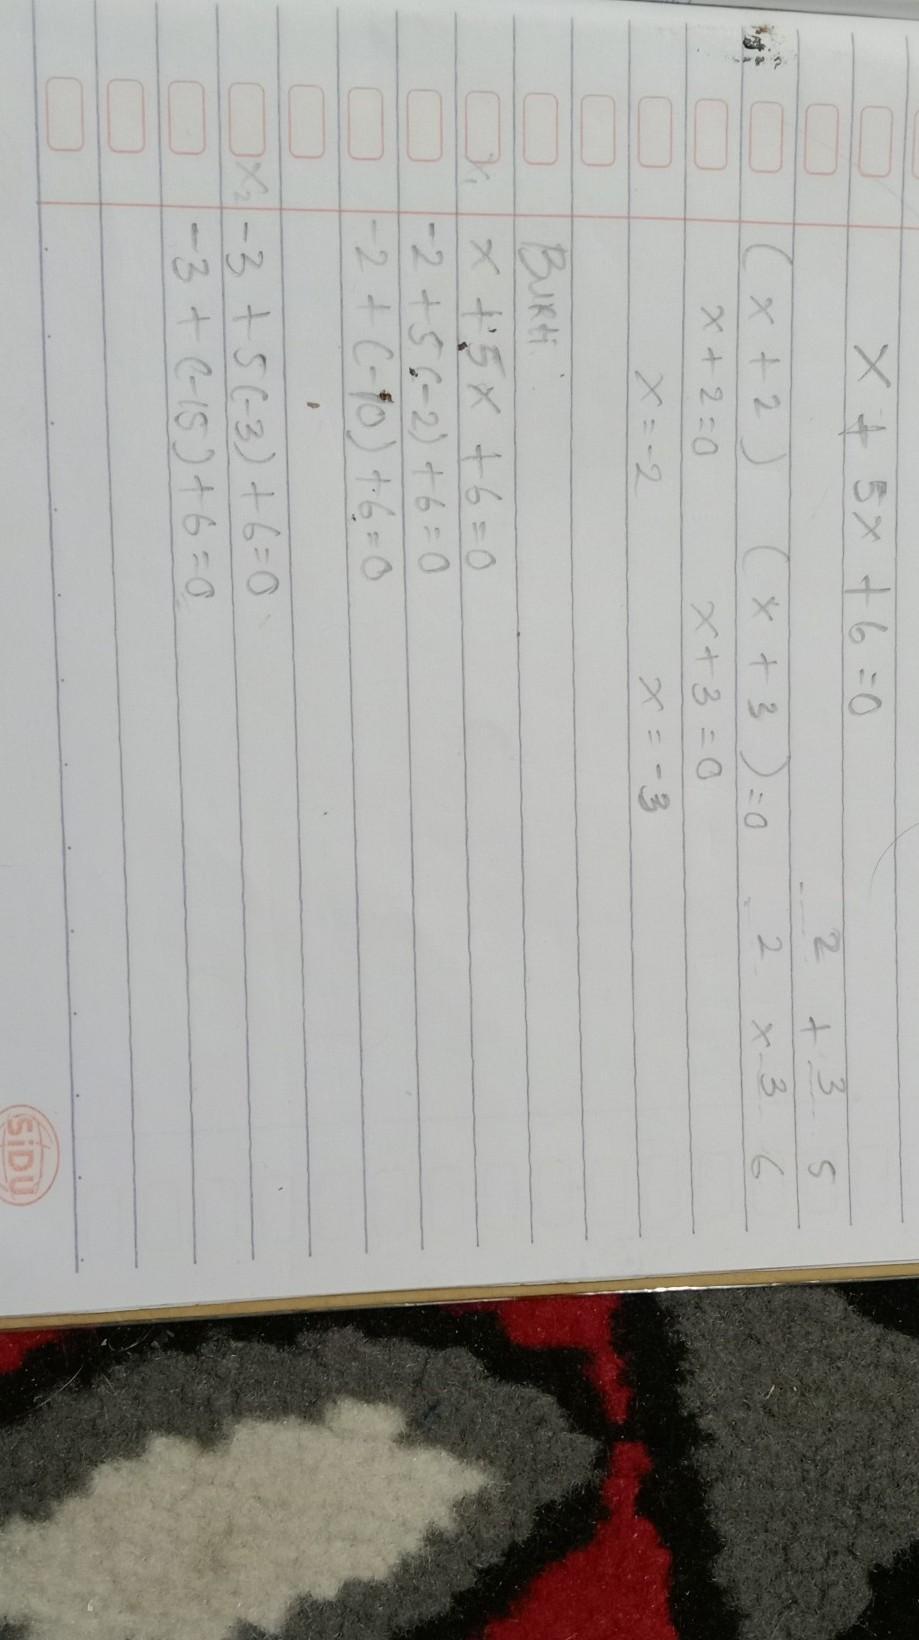 x + 5x + 6 = 0
2 + 3 5
(x + 2) (x + 3) = 0 2 x 3 6
x + 2 = 0 x + 3 = 0
x = -2 x = -3
Bukti
x₁ x + 5x + 6 = 0
-2 + 5(-2) + 6 = 0
-2 + (-10) + 6 = 0
x₂ -3 + 5(-3) + 6 = 0
-3 + (-15) + 6 = 0
SiDU